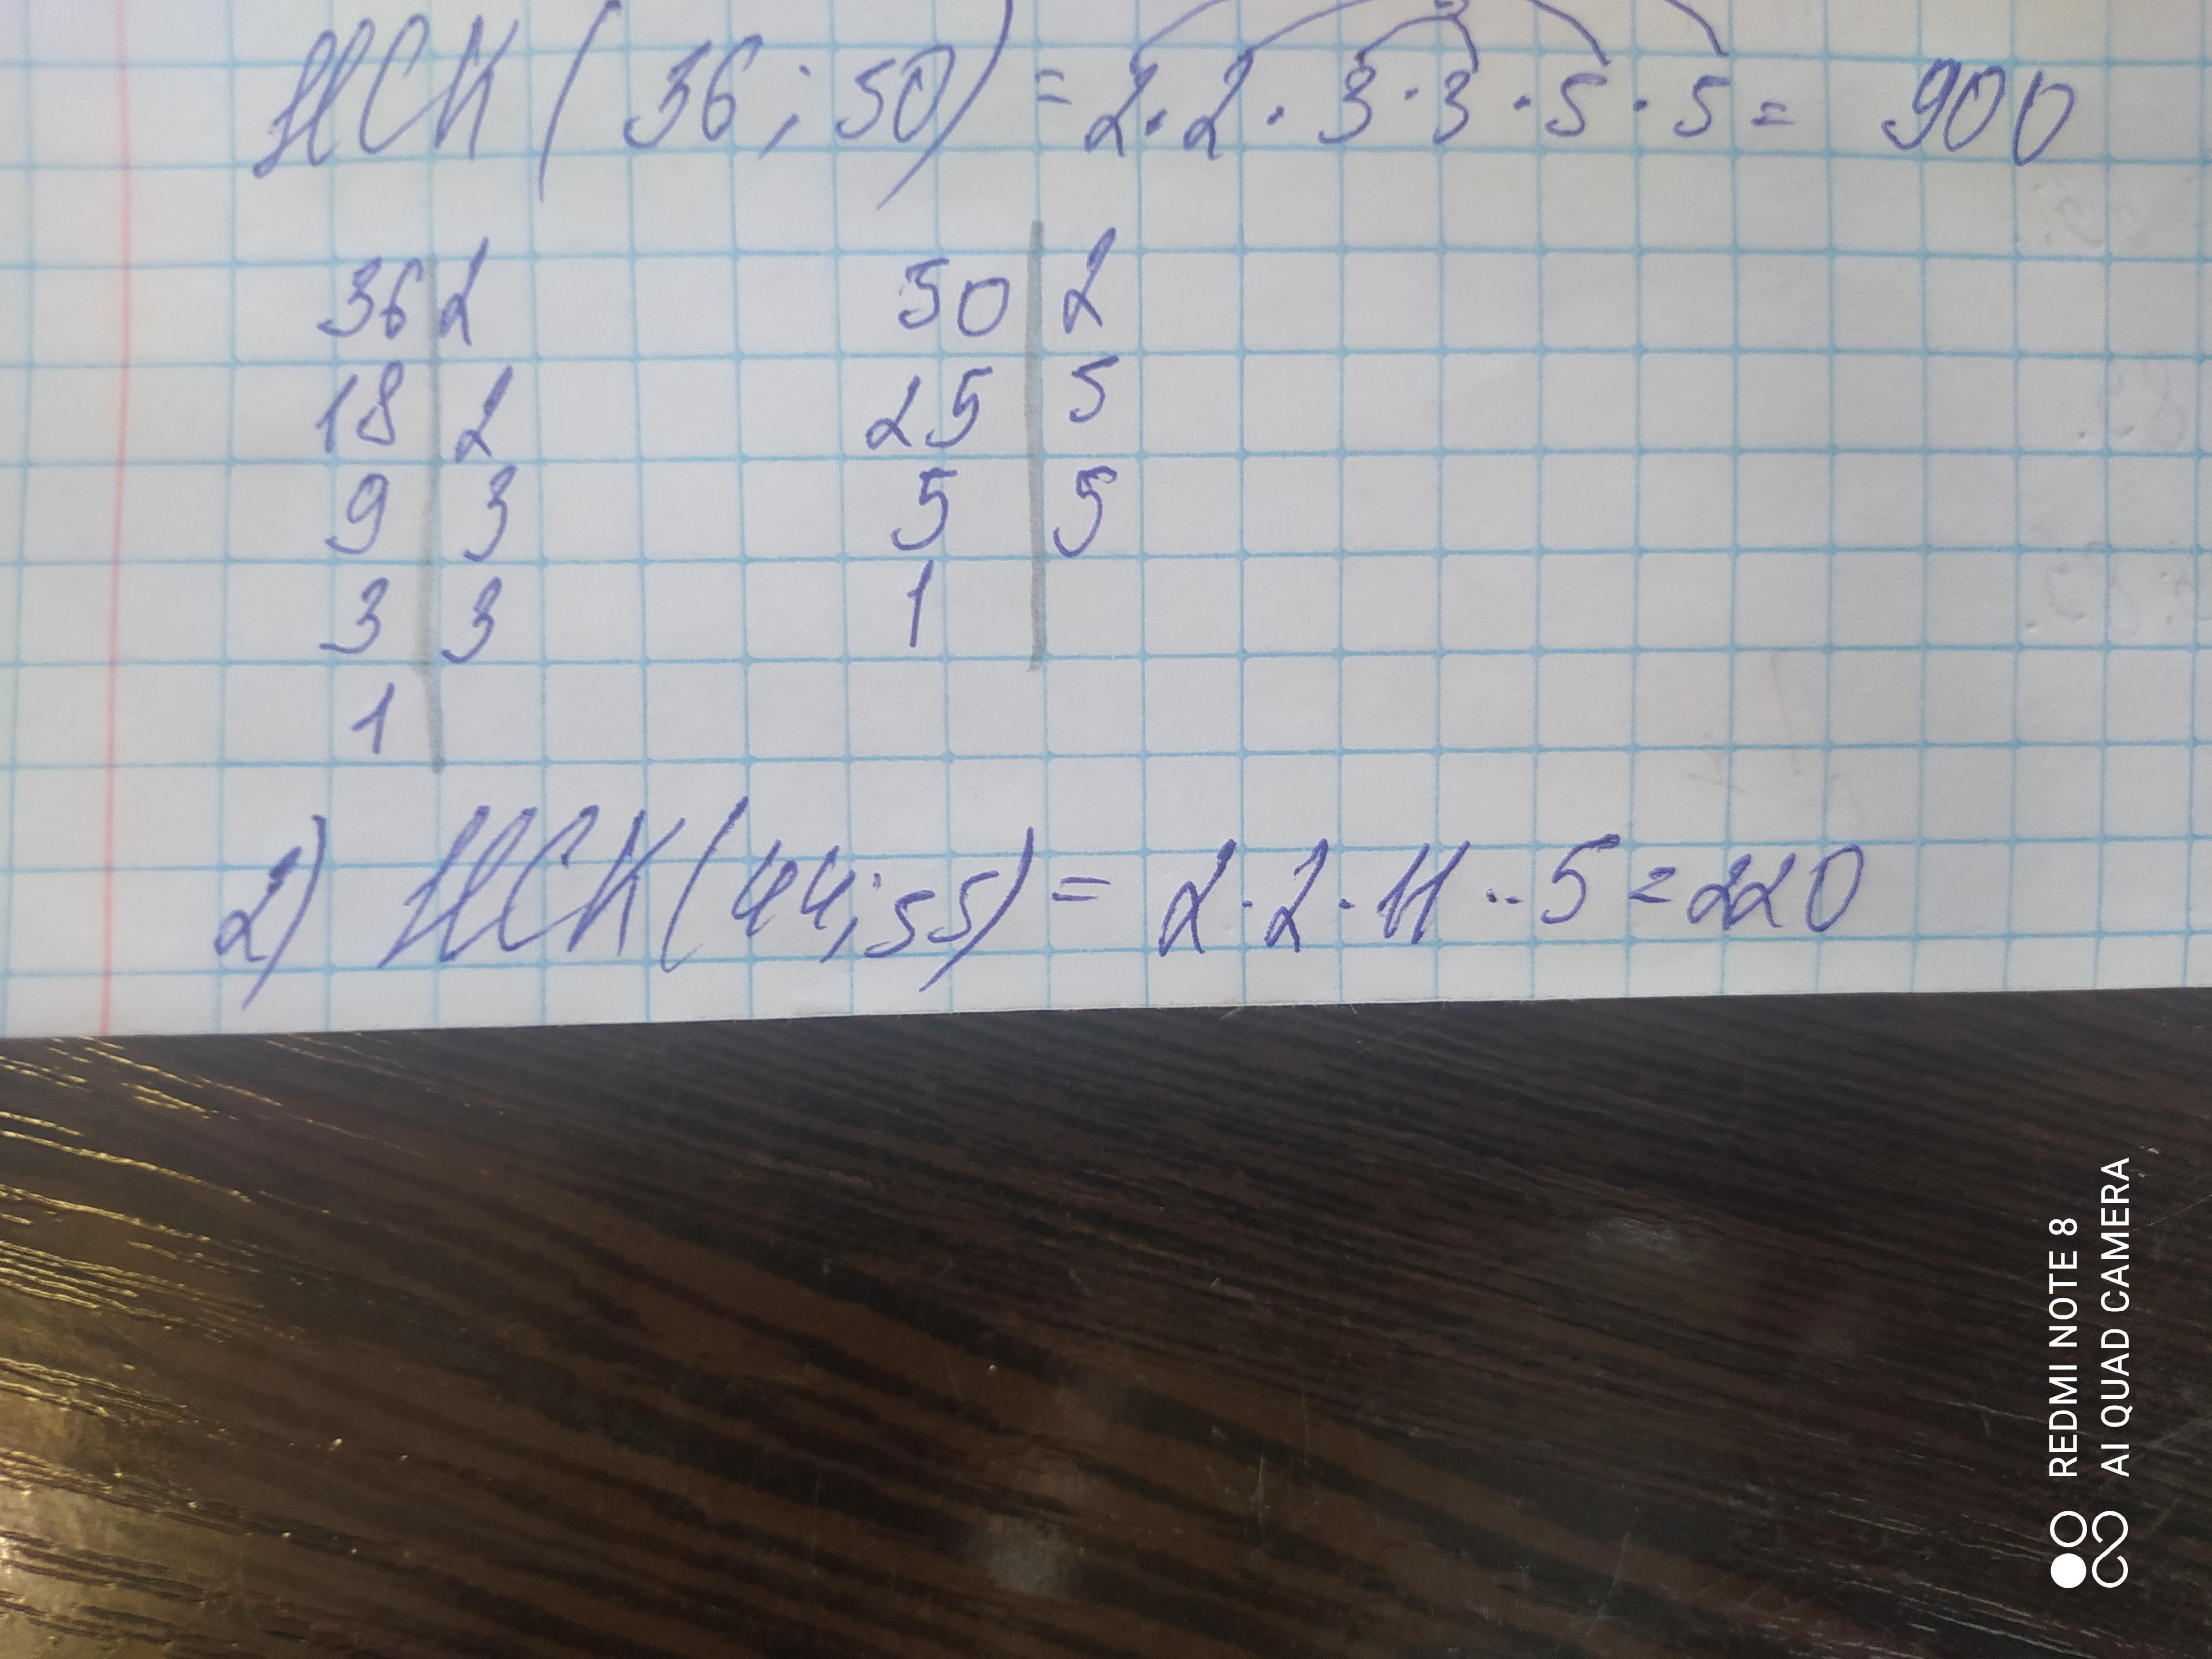 НСК ( 36 ; 50 ) = 2 · 2 · 3 · 3 · 5 · 5 = 900
36 | 2 50 | 2
18 | 2 25 | 5
9 | 3 5 | 5
3 | 3 1 |
1 |
2) НСК (44; 55) = 2 · 2 · 11 · · 5 = 220
REDMI NOTE 8
AI QUAD CAMERA